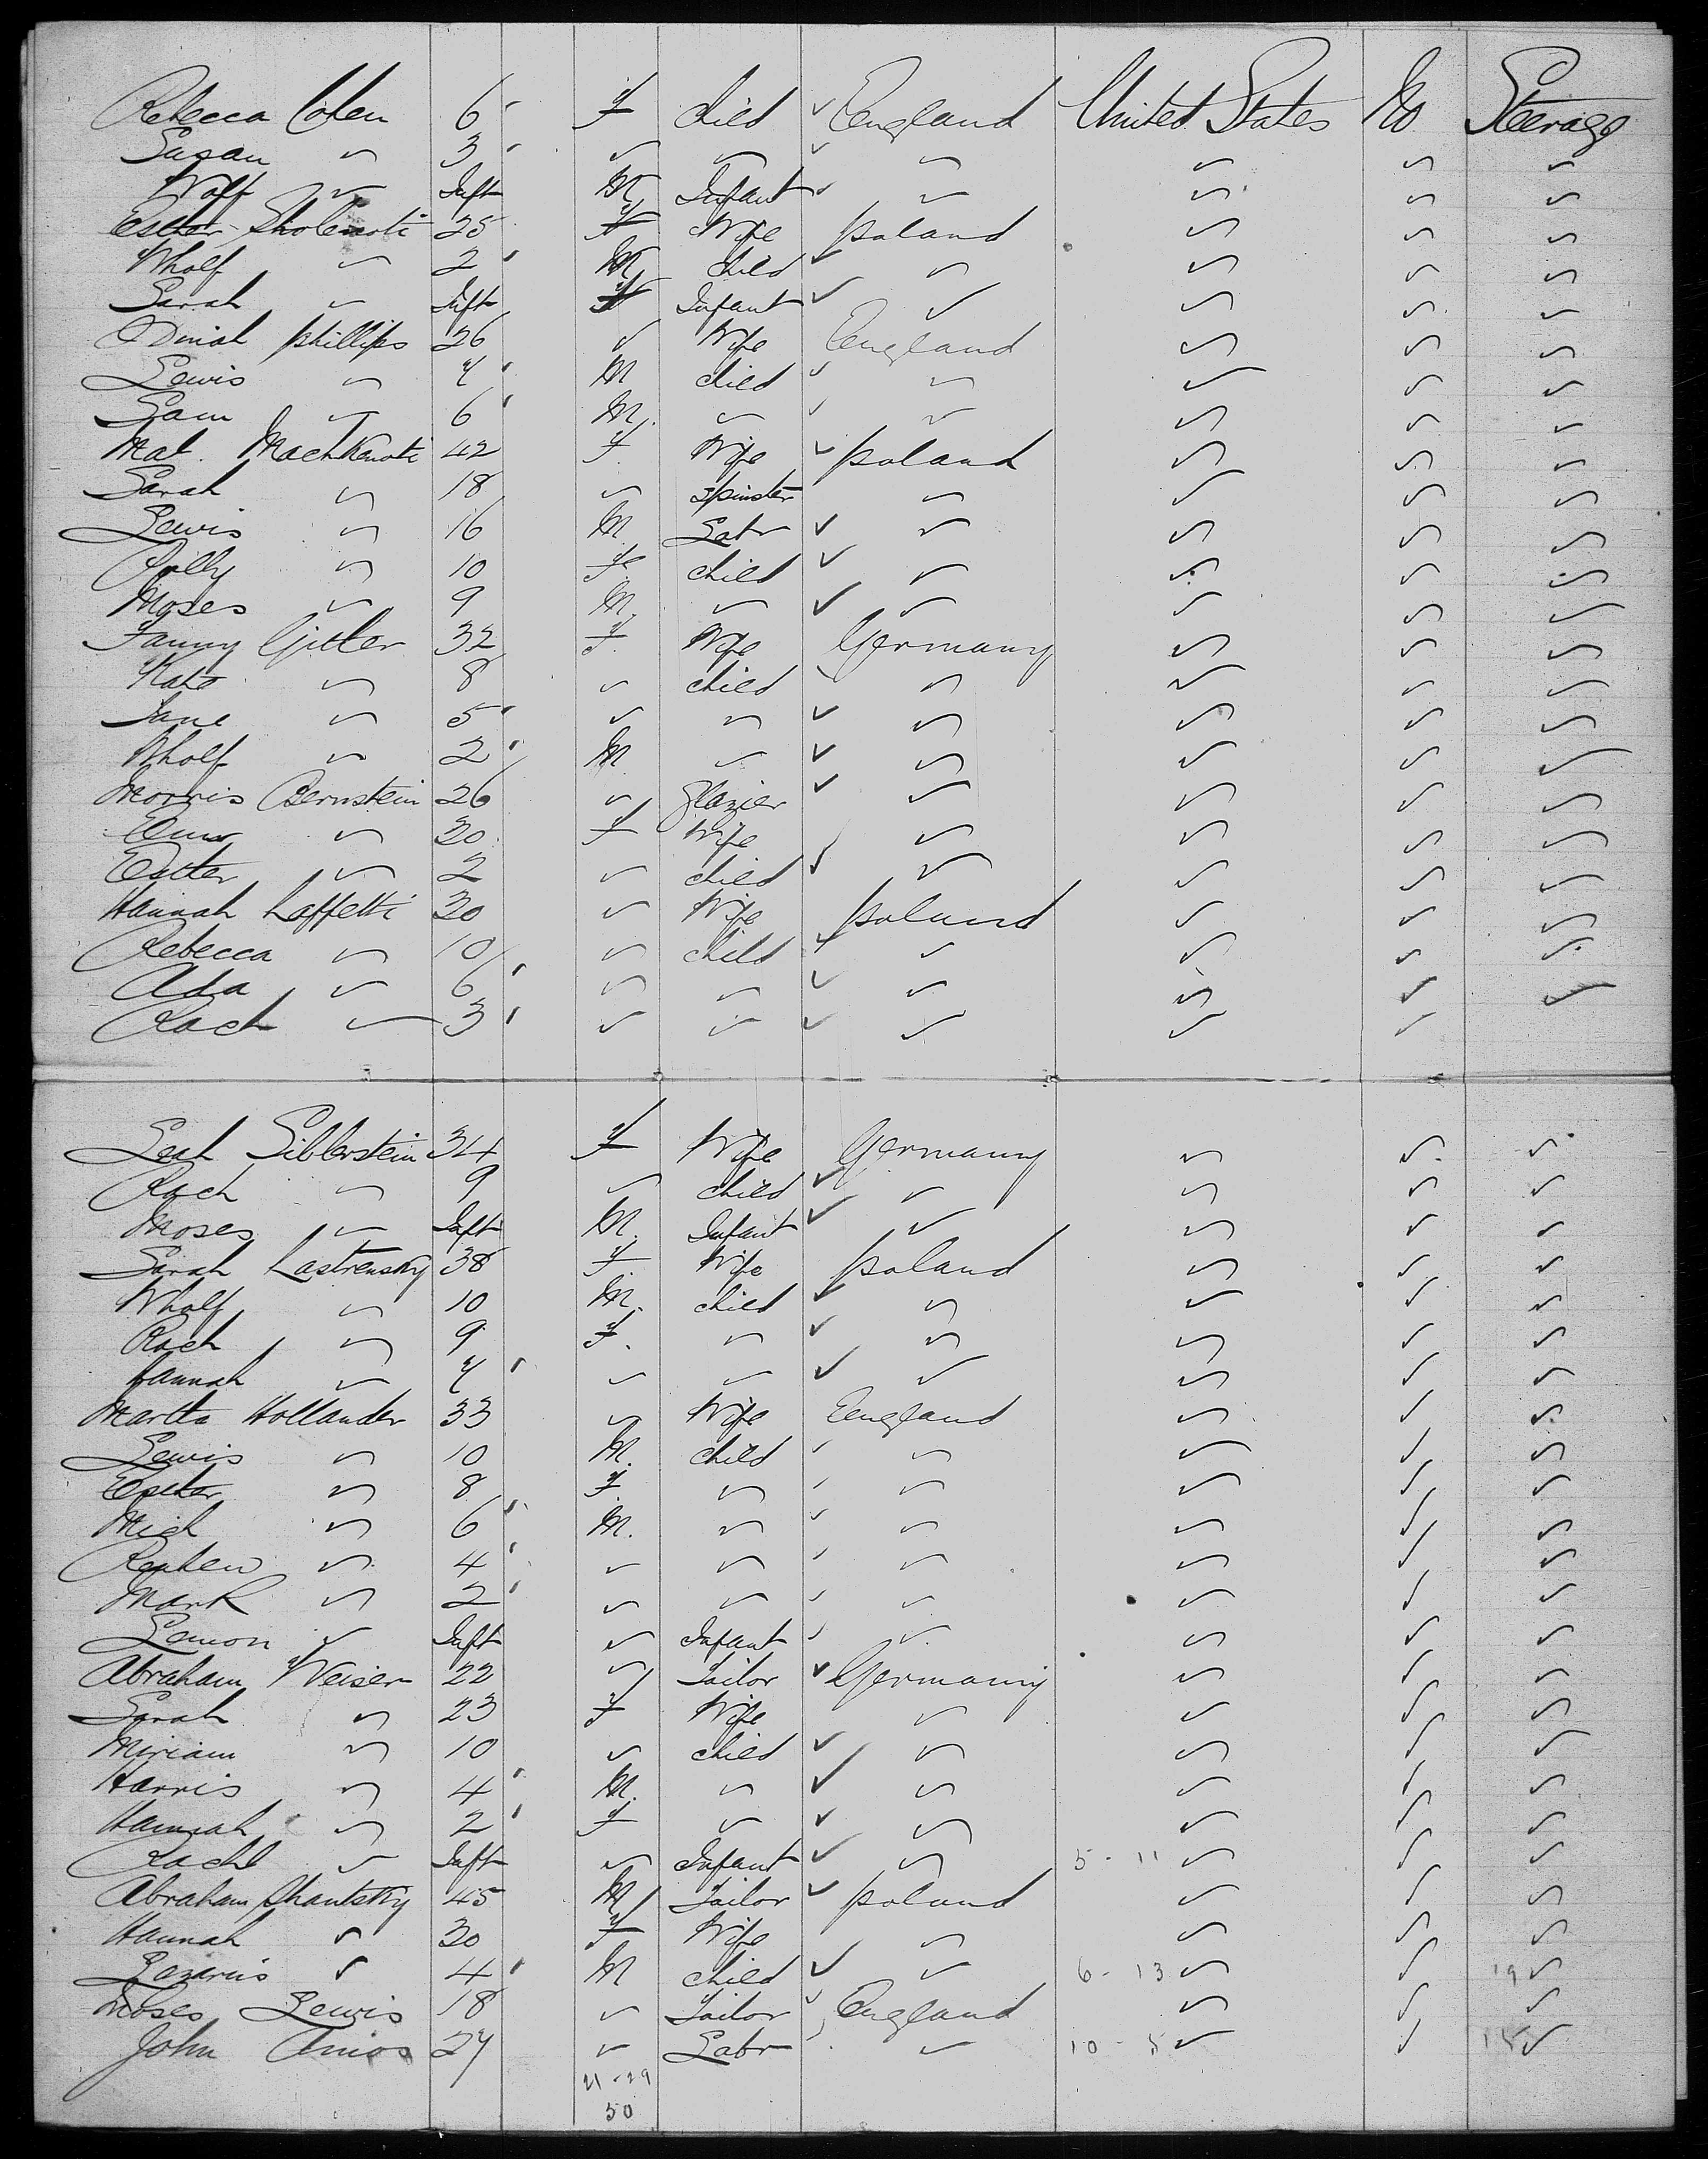 Rebecca Cohen 6 F child England United States No Steerage
Susan " 3 " " " " " "
Wolf " Inft M Infant " " " "
Esther 25 F Wife poland " " "
Wholf " 2 M child " " " "
Sarah " Inft F Infant " " " "
Dinah phillips 26 " Wife England " " "
Lewis " 7 M child " " " "
Sam " 6 M. " " " " "
Mal. 42 F. Wife poland " " "
Sarah " 18 " Spinster " " " "
Lewis " 16 M Labr " " " "
Polly " 10 Fe child " " " "
Moses " 9 M. " " " " "
Fanny Gitler 32 F. Wife Germany " " "
Kate " 8 " child " " " "
Jane " 5 " " " " " "
Wholf " 2 M " " " " "
Morris Bernstein 26 " glazier " " " "
" 20 F Wife " " " "
Esther " 2 " child " " " "
Hannah Laffetti 30 " Wife poland " " "
Rebecca " 10 " child " " " "
Ada " 6 " " " " " "
Rach " 3 " " " " "
Leah Siblerstein 34 F Wife Germany " " "
Rach " 9 " child " " " "
Moses " Inft M. Infant " " " "
Sarah Lastrensky 38 F Wife poland " " "
Wholf " 10 M. child " " " "
Rach " 9 F. " " " " "
Hannah " 7 " " " " " "
Martha Hollander 33 " Wife England " " "
Lewis " 10 M. child " " " "
Esther " 8 F " " " " "
Mich " 6 M. " " " " "
Reuben " 4 " " " " " "
Mark " 2 " " " " " "
Lemon " Inft " Infant " " " "
Abraham Weiser 22 " Tailor Germany " " "
Sarah " 23 F Wife " " " "
Miriam " 10 " child " " " "
Harris " 4 M. " " " " "
Hannah " 2 F " " " " "
Rachl " Inft " Infant " 5 - 11 " " "
Abraham Shantsky 45 M Tailor poland " " "
Hannah " 30 F Wife " " " "
Lazarus " 4 M child " 6 - 13 " " 19 "
Moses Lewis 18 " Tailor England " " "
John Amos 27 " Labr " 10 - 8 " " "
21 - 29
50